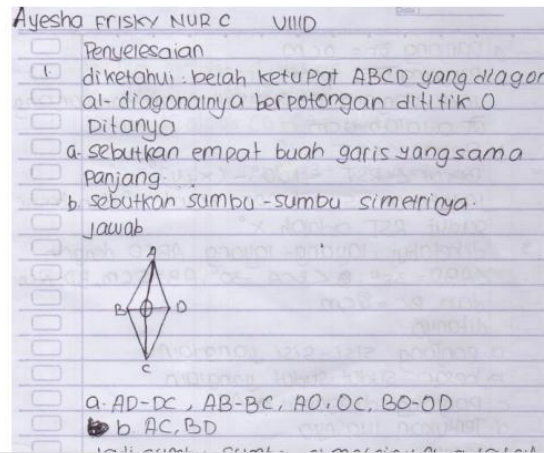 Ayesha FRISKY NUR C VIIID
Penyelesaian
1. diketahui : belah ketupat ABCD yang diagon
al-diagonalnya berpotongan dititik O
Ditanya
a. sebutkan empat buah garis yang sama
Panjang
b. sebutkan sumbu-sumbu simetrinya.
Jawab
A
B O D
C
a. AD-DC, AB-BC, AO, OC, BO-OD
b. AC, BD